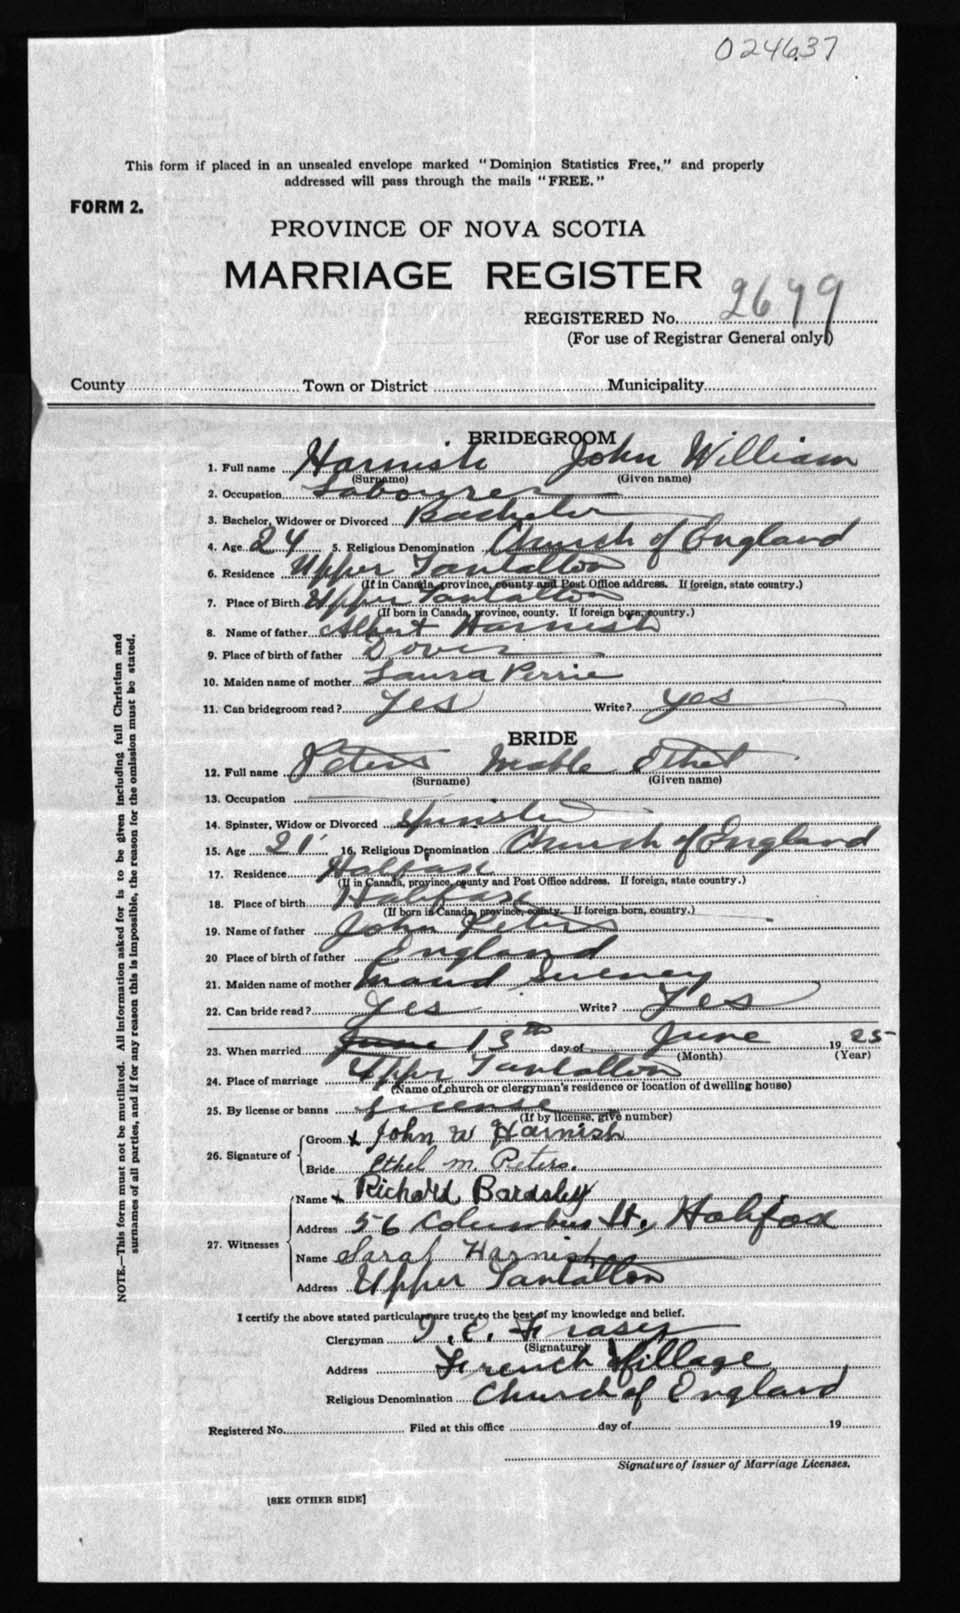 024637
This form if placed in an unsealed envelope marked "Dominion Statistics Free," and properly
addressed will pass through the mails "FREE."
FORM 2.
PROVINCE OF NOVA SCOTIA
MARRIAGE REGISTER
REGISTERED No. 2679
(For use of Registrar General only.)
County Town or District Municipality
BRIDEGROOM
1. Full name Harnish John William
(Surname) (Given name)
2. Occupation Labourer
3. Bachelor, Widower or Divorced Bachelor
4. Age 24 5. Religious Denomination Church of England
6. Residence Upper Tantallon
(If in Canada, province, county and Post Office address. If foreign, state country.)
7. Place of Birth Upper Tantallon
(If born in Canada, province, county. If foreign born, country.)
8. Name of father Albert Harnish
9. Place of birth of father Dover
10. Maiden name of mother Laura Perrie
11. Can bridegroom read? Yes Write? yes
BRIDE
12. Full name Peters Mable Ethel
(Surname) (Given name)
13. Occupation
14. Spinster, Widow or Divorced Spinster
15. Age 21 16. Religious Denomination Church of England
17. Residence Halifax
(If in Canada, province, county and Post Office address. If foreign, state country.)
18. Place of birth Halifax
(If born in Canada, province, county. If foreign born, country.)
19. Name of father John Peters
20 Place of birth of father England
21. Maiden name of mother Maud
22. Can bride read? Yes Write? Yes
23. When married June 13th day of June 1925
(Month) (Year)
24. Place of marriage Upper Tantallon
(Name of church or clergyman's residence or location of dwelling house)
25. By license or banns License
(If by license, give number)
26. Signature of Groom x John W Harnish
Bride Ethel M. Peters.
27. Witnesses Name x Richard Bardsley
Address 56 Columbus St., Halifax
Name Sarah Harnish
Address Upper Tantallon
I certify the above stated particulars are true to the best of my knowledge and belief.
Clergyman T. E. Fraser
(Signature)
Address French Village
Religious Denomination Church of England
Registered No. Filed at this office day of 19
Signature of Issuer of Marriage Licenses.
[SEE OTHER SIDE]
NOTE.—This form must not be mutilated. All information asked for is to be given including full Christian and
surnames of all parties, and if for any reason this is impossible, the reason for the omission must be stated.